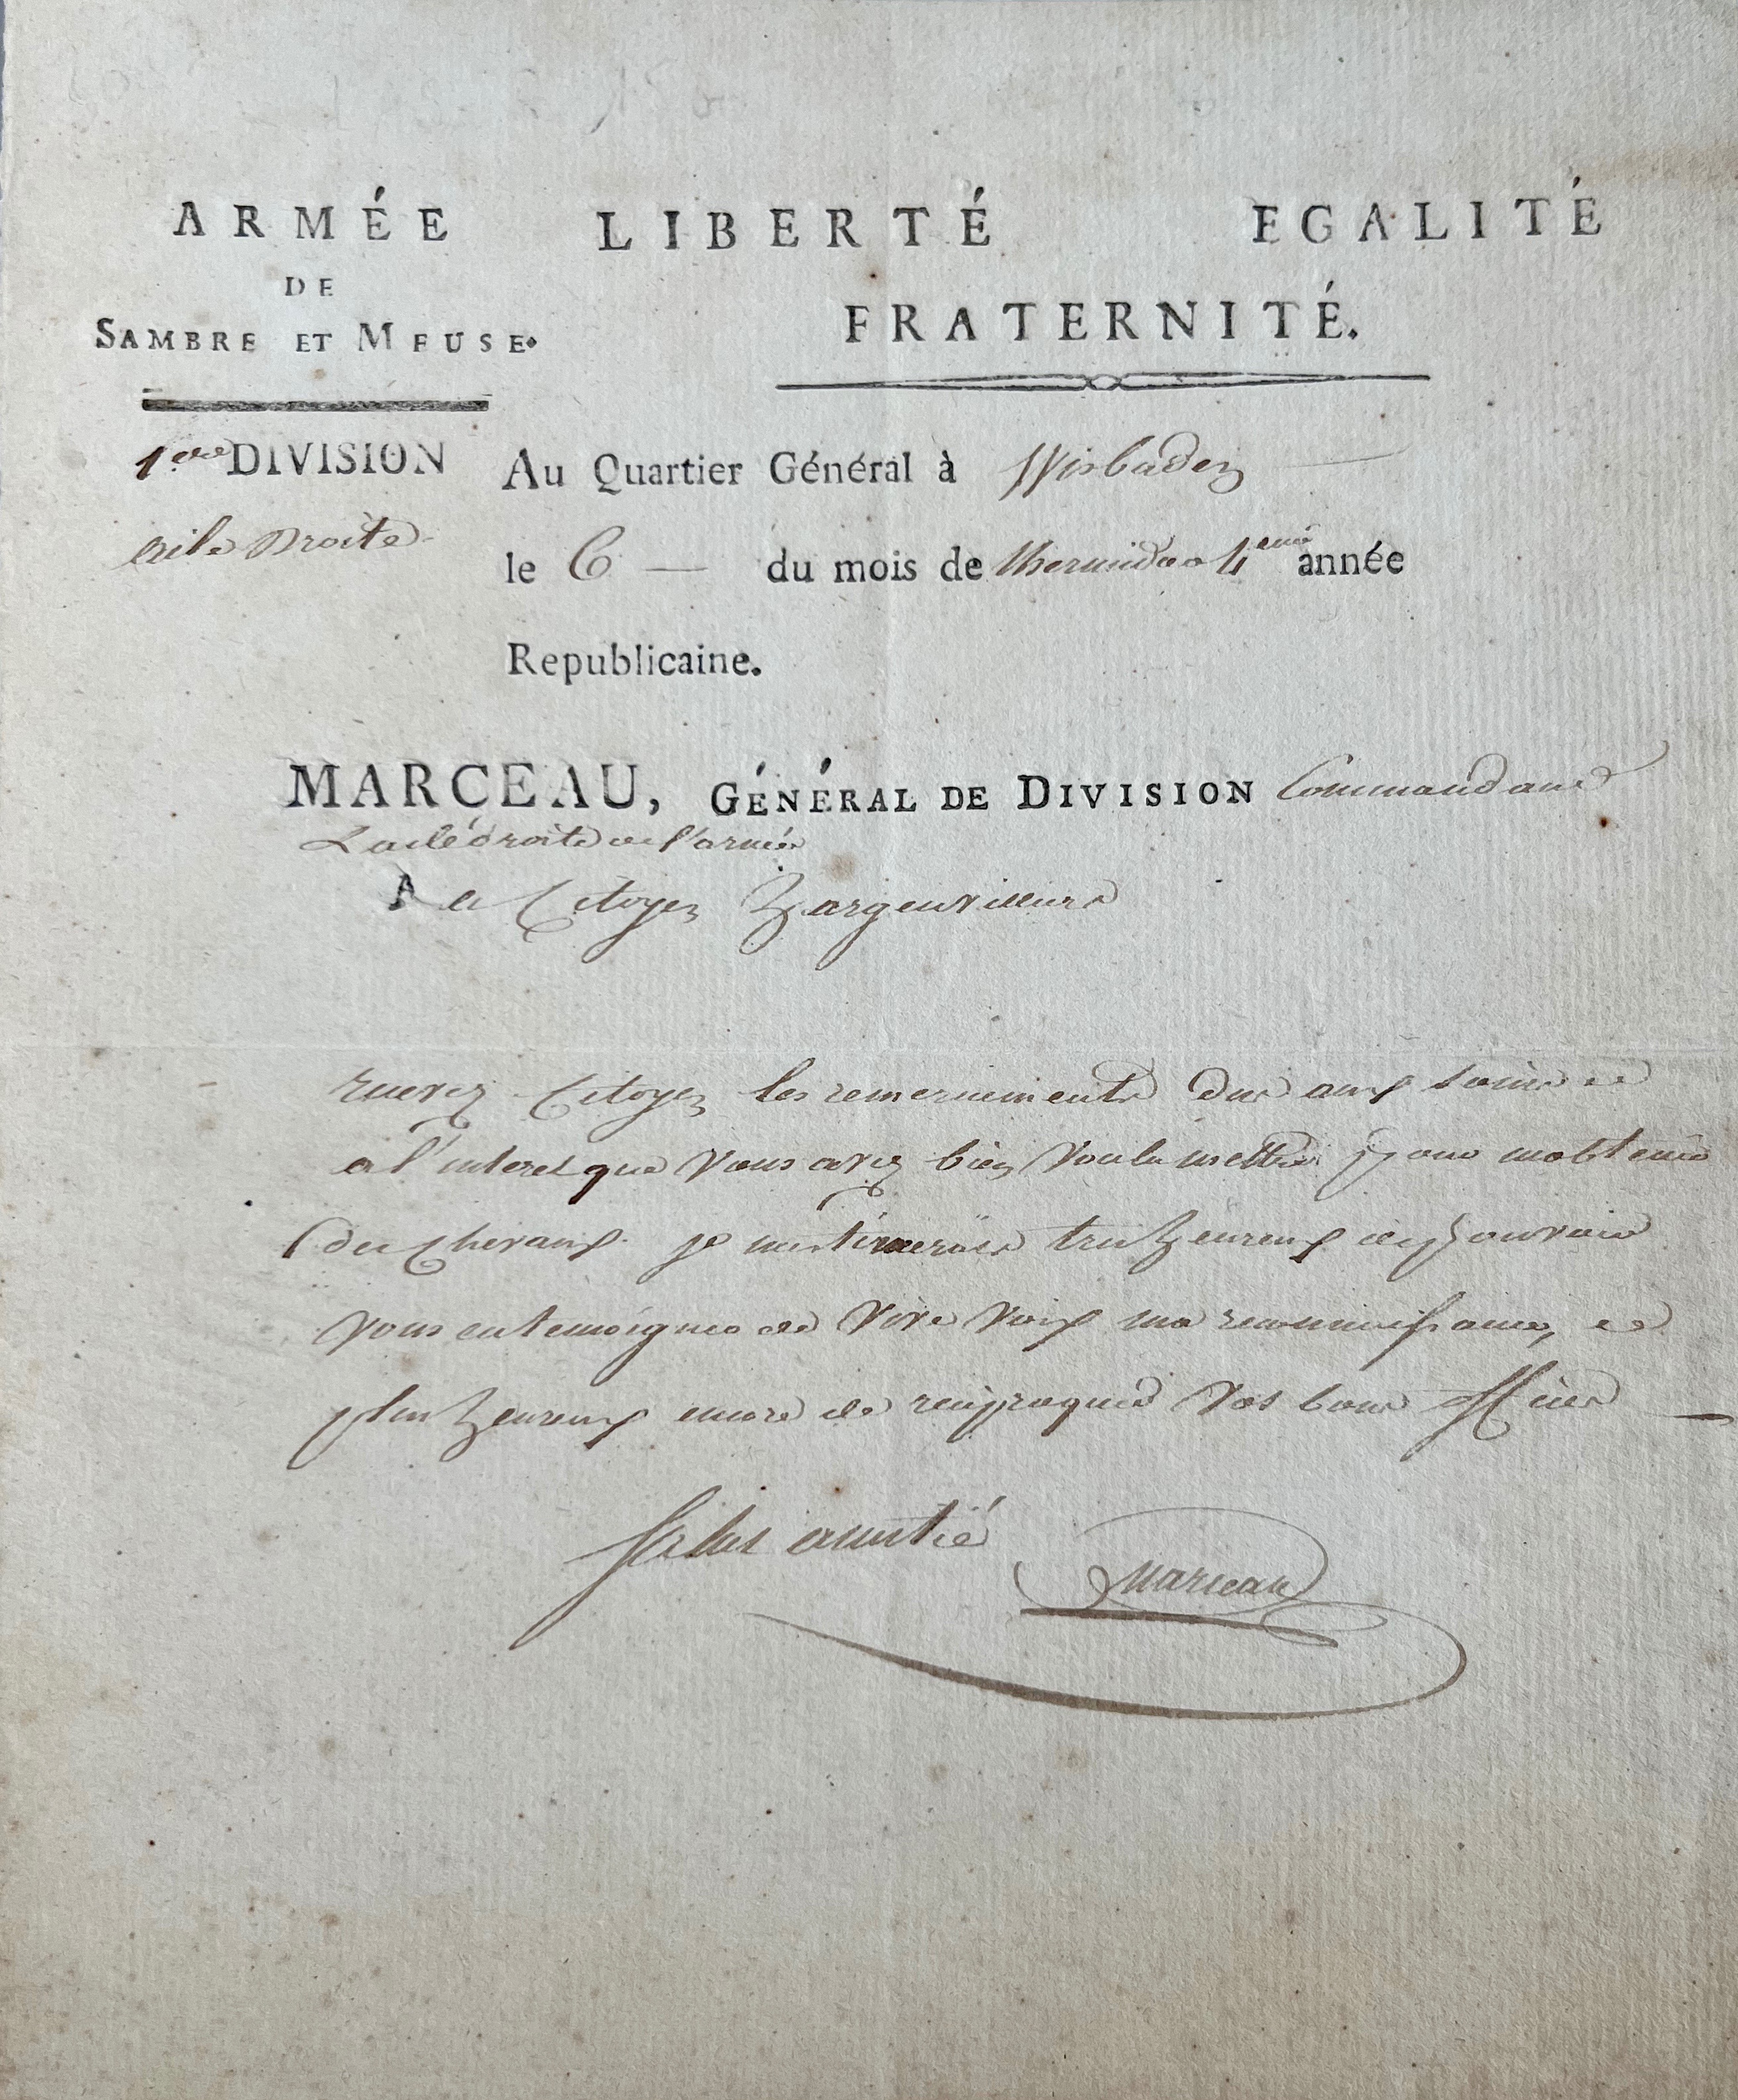 ARMÉE
DE
SAMBRE ET MEUSE.
LIBERTÉ EGALITÉ
FRATERNITÉ.
1ere DIVISION
aile Droite
Au Quartier Général à Wisbaden
le 6 du mois de thermidor 4eme année
Republicaine.
MARCEAU, GÉNÉRAL DE DIVISION Commandant
L'aile droite de l'armée
A le Citoyen
recevez Citoyen les remerciements dus aux soins et
a l'interet que vous avez bien voulu mettre pour m'obtenir
des chevaux. je m'estimerois tres heureux si je pouvais
vous en temoigner de vive voix ma reconnoissance, et
plus heureux encore de reciproquer vos bons offices
Salut amitié
Marceau